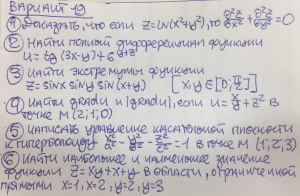 ВАРИАНТ 19
① Доказать, что если Z=ln(x²+y²), то ∂²z/∂x²+∂²z/∂y²=0
② Найти полный дифференциал функции
u=tg(3x-y)+6^(y+z)
③ Найти экстремумы функции
Z=sinx siny sin(x+y) [x,y∈[0;π/2]]
④ Найти gradu и |gradu|, если u=x/y+z² в
точке M(2;1;0)
⑤ Написать уравнение касательной плоскости
к гиперболоиду x²/… -y²/… -z²/… =1 в точке M(1;2;3)
⑥ Найти наибольшее и наименьшее значение
функции Z=xy+x+y в области, ограниченной
прямыми x=1, x=2, y=2, y=3